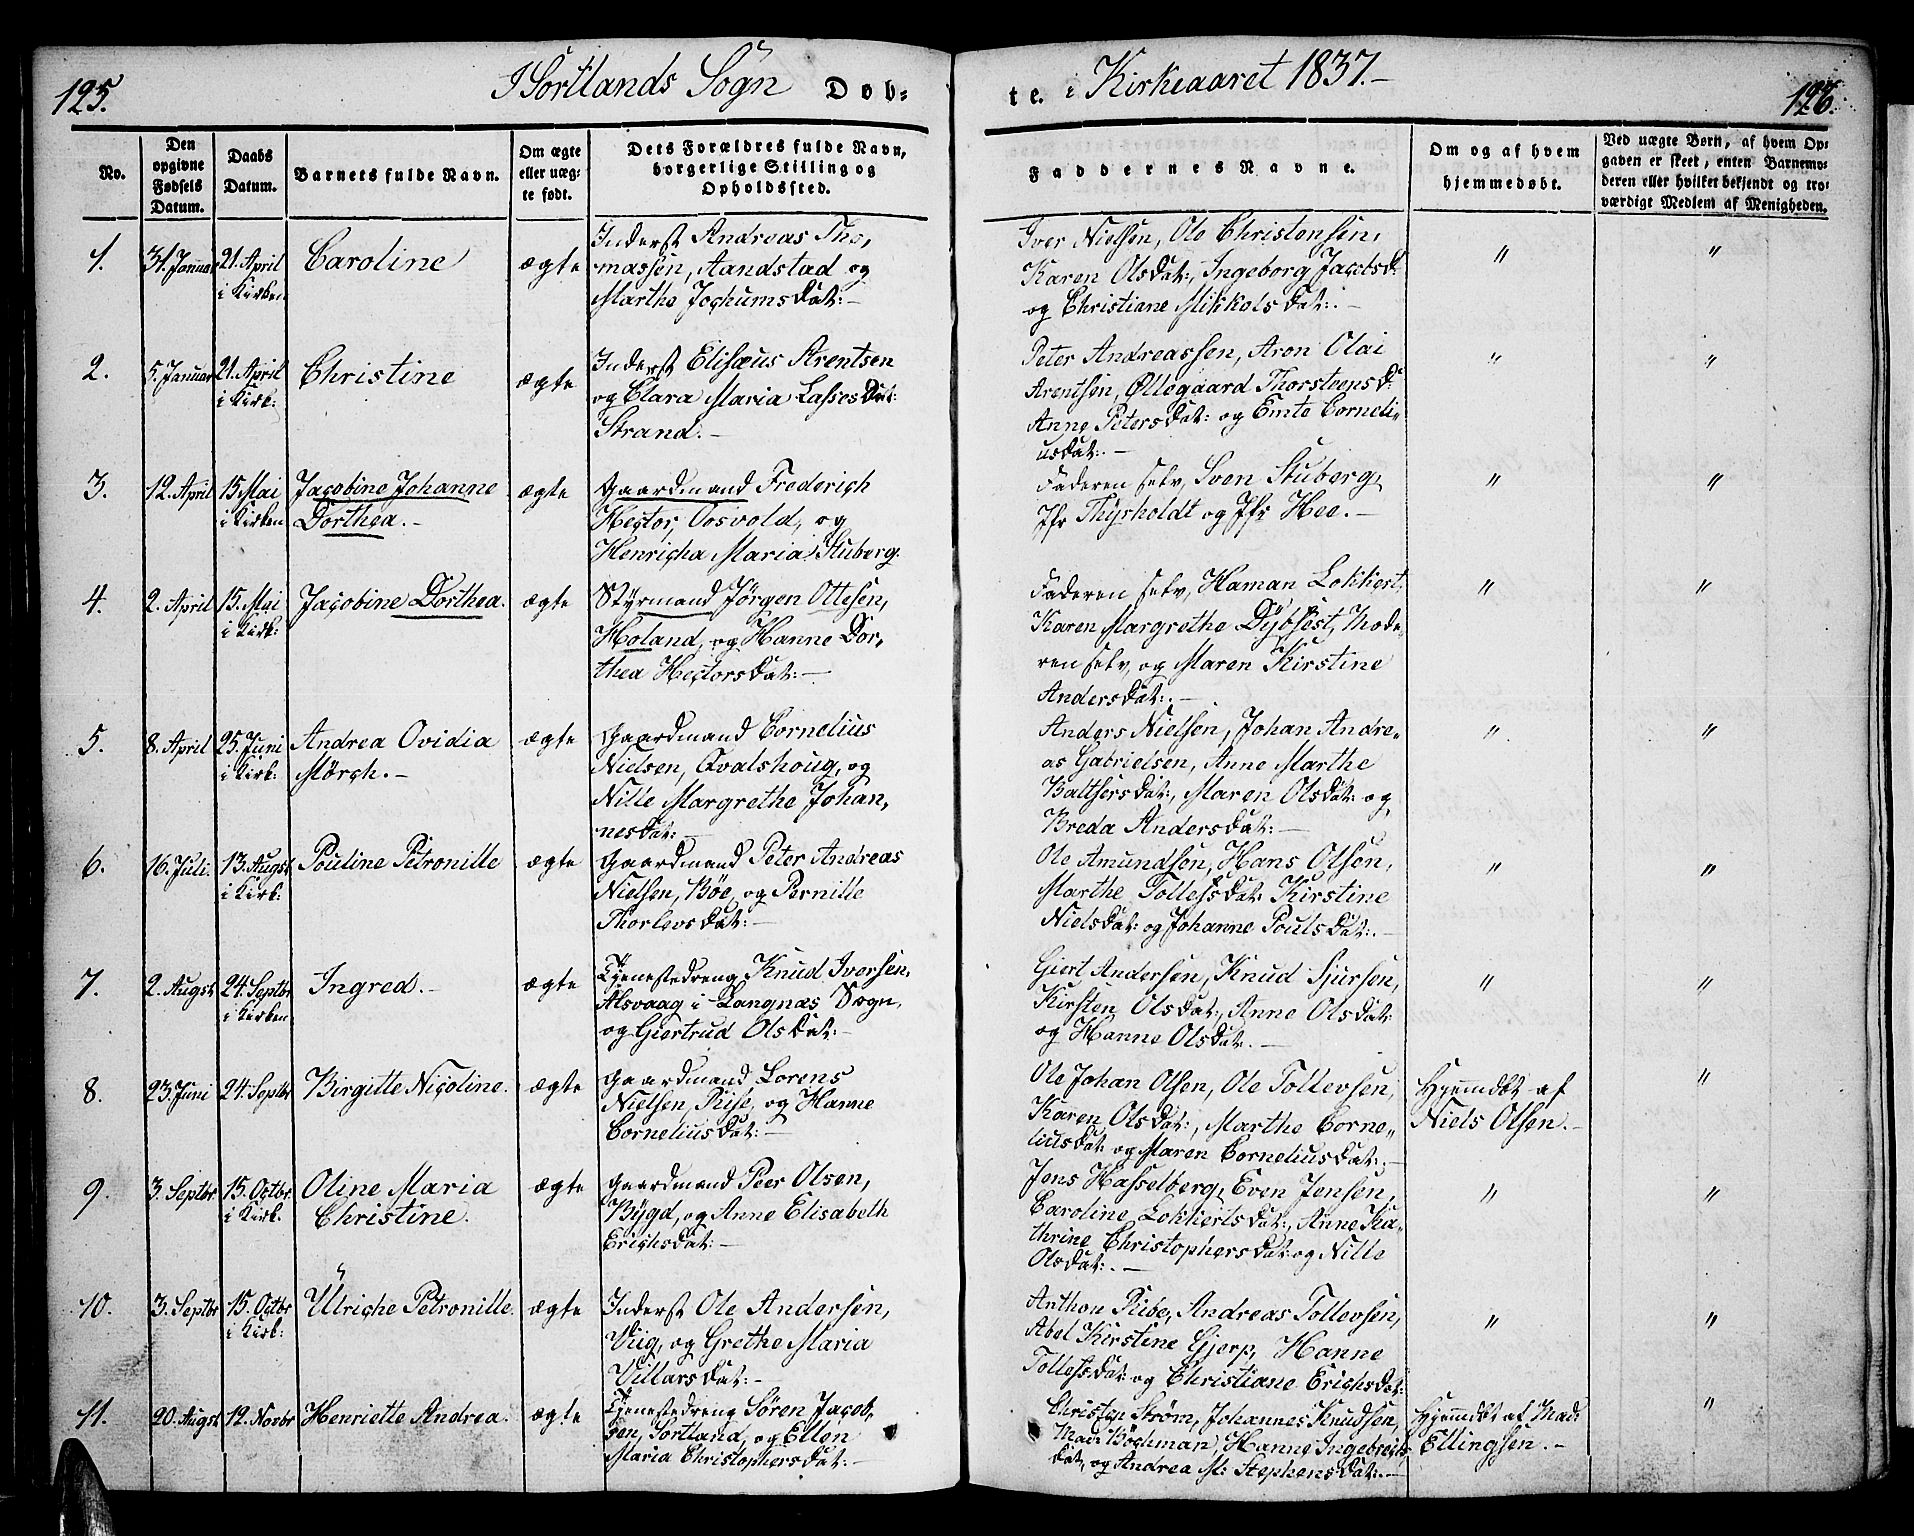 125.
I Sortlands Sogn Dob-
te. i Kirkeaaret 1837.-
126.
No.
Den opgivne Fødsels Datum.
Daabs Datum.
Barnets fulde Navn.
Om ægte eller uæg-te født.
Dets Forældres fulde Navn, borgerlige Stilling og Opholdssted.
Faddernes Navne.
Om og af hvem hjemmedøbt.
Ved uægte Børn, af hvem Op-
gaven er skeet, enten Barnemo-
deren eller hvilket bekjendt og tro-
værdigt Medlem af Menigheden.
1. 31. Januar 21. April i Kirken
Caroline
ægte
Inderst Andreas Tho-
massen, Aandstad og
Marthe Jochumsdat:-
Iver Nielsen, Ole Christensen,
Karen Olsdat:, Ingeborg Jacobsd:
og Christiane Mikkelsdat:.-
" "
2. 5. Januar 21. April i Kirk:
Christine
ægte
Inderst Elisæus Arentsen
og Clara Maria Lassesdat:
Strand.-
Peter Andreassen, Aron Olai
Arentsen, Øllegaard Thorsteensd:
Anne Petersdat: og Emte Corneli-
usdat:.-
" "
3. 12. April 15. Mai i Kirken
Jacobine Johanne
Dorthea.-
ægte
Gaardmand Frederich
Hector, Oosvold, og
Henricha Maria Stuberg.
Faderen selv, Sven Stuberg,
Jfr Thyrholdt og Jfr Hee.-
" "
4. 2. April 15. Mai i Kirk:
Jacobine Dorthea.
ægte
Styrmand Jørgen Ottesen,
Holand, og Hanne Dor-
thea Hectorsdat:-
Faderen selv, Haman Lokkert,
Karen Margrethe Dybfest, Mode-
ren selv, og Maren Kirstine
Andersdat:.-
" "
5. 8. April 25. Juni i Kirk:
Andrea Ovidia
Mørch.-
ægte
Gaardmand Cornelius
Nielsen, Qvalshoug, og
Nille Margrethe Johan-
nesdat:-
Anders Nielsen, Johan Andre-
as Gabrielsen, Anne Marthe
Baltsersdat:, Maren Olsdat: og
Breda Andersdat:-
" "
6. 16. Juli. 13. Augst i Kirk:
Pouline Petronille
ægte
Gaardmand Peter Andreas
Nielsen, Bøe, og Pernille
Thorlevsdat:-
Ole Amundsen, Hans Olsen,
Marthe Tollefsdat: Kirstine
Nielsdat: og Johanne Poulsdat:.-
" "
7. 2. Augst 24. Septbr i Kirken
Ingred.-
ægte
Tjenestedreng Knud Iversen,
Alsvaag i Langnæs Sogn,
og Giertrud Olsdat:-
Giert Andersen, Knud Sjursen,
Kirsten Olsdat:, Anne Olsdat:
og Hanne Olsdat:.-
" "
8. 23. Juni 24. Septbr
Birgitte Nicoline.
ægte
Gaardmand Lorens
Nielsen, Rise, og Hanne
Corneliusdat:-
Ole Johan Olsen, Ole Tollevsen,
Karen Olsdat:, Marthe Corne-
liusdat: og Maren Corneliusdat:.-
Hjemdbt af
Niels Olsen.-
"
9. 3. Septbr. 15. Octbr. i Kirk.
Oline Maria
Christine.
ægte
Gaardmand Peer Olsen,
Bygd, og Anne Elisabeth
Erichsdat:-
Jens Hasselberg, Even Jensen,
Caroline Lokkertsdat:, Anne Ka-
thrine Christophersdat: og Nille
Olsdat:.-
" "
10. 3. Septbr 15. Octbr i Kirk:
Ulriche Petronille.
ægte
Inderst Ole Andersen,
Viig, og Grethe Maria
Villarsdat:-
Anthon Pube, Andreas Tollevsen,
Abel Kirstine Gjerp, Hanne
Tollefsdat: og Christiane Erichsdat:
" "
11. 20. Augst 12. Novbr
Henriette Andrea.
ægte
Tjenestedreng Søren Jacob-
sen, Sortland, og Ellen
Maria Christophersdat:-
Christen Strøm, Johannes Knudsen,
Mad: Bochman, Hanne Ingebreits-
dat, og Andrea M: Stephensdat:.-
Hjemdbt af Mad:
Ellingsen.-
"